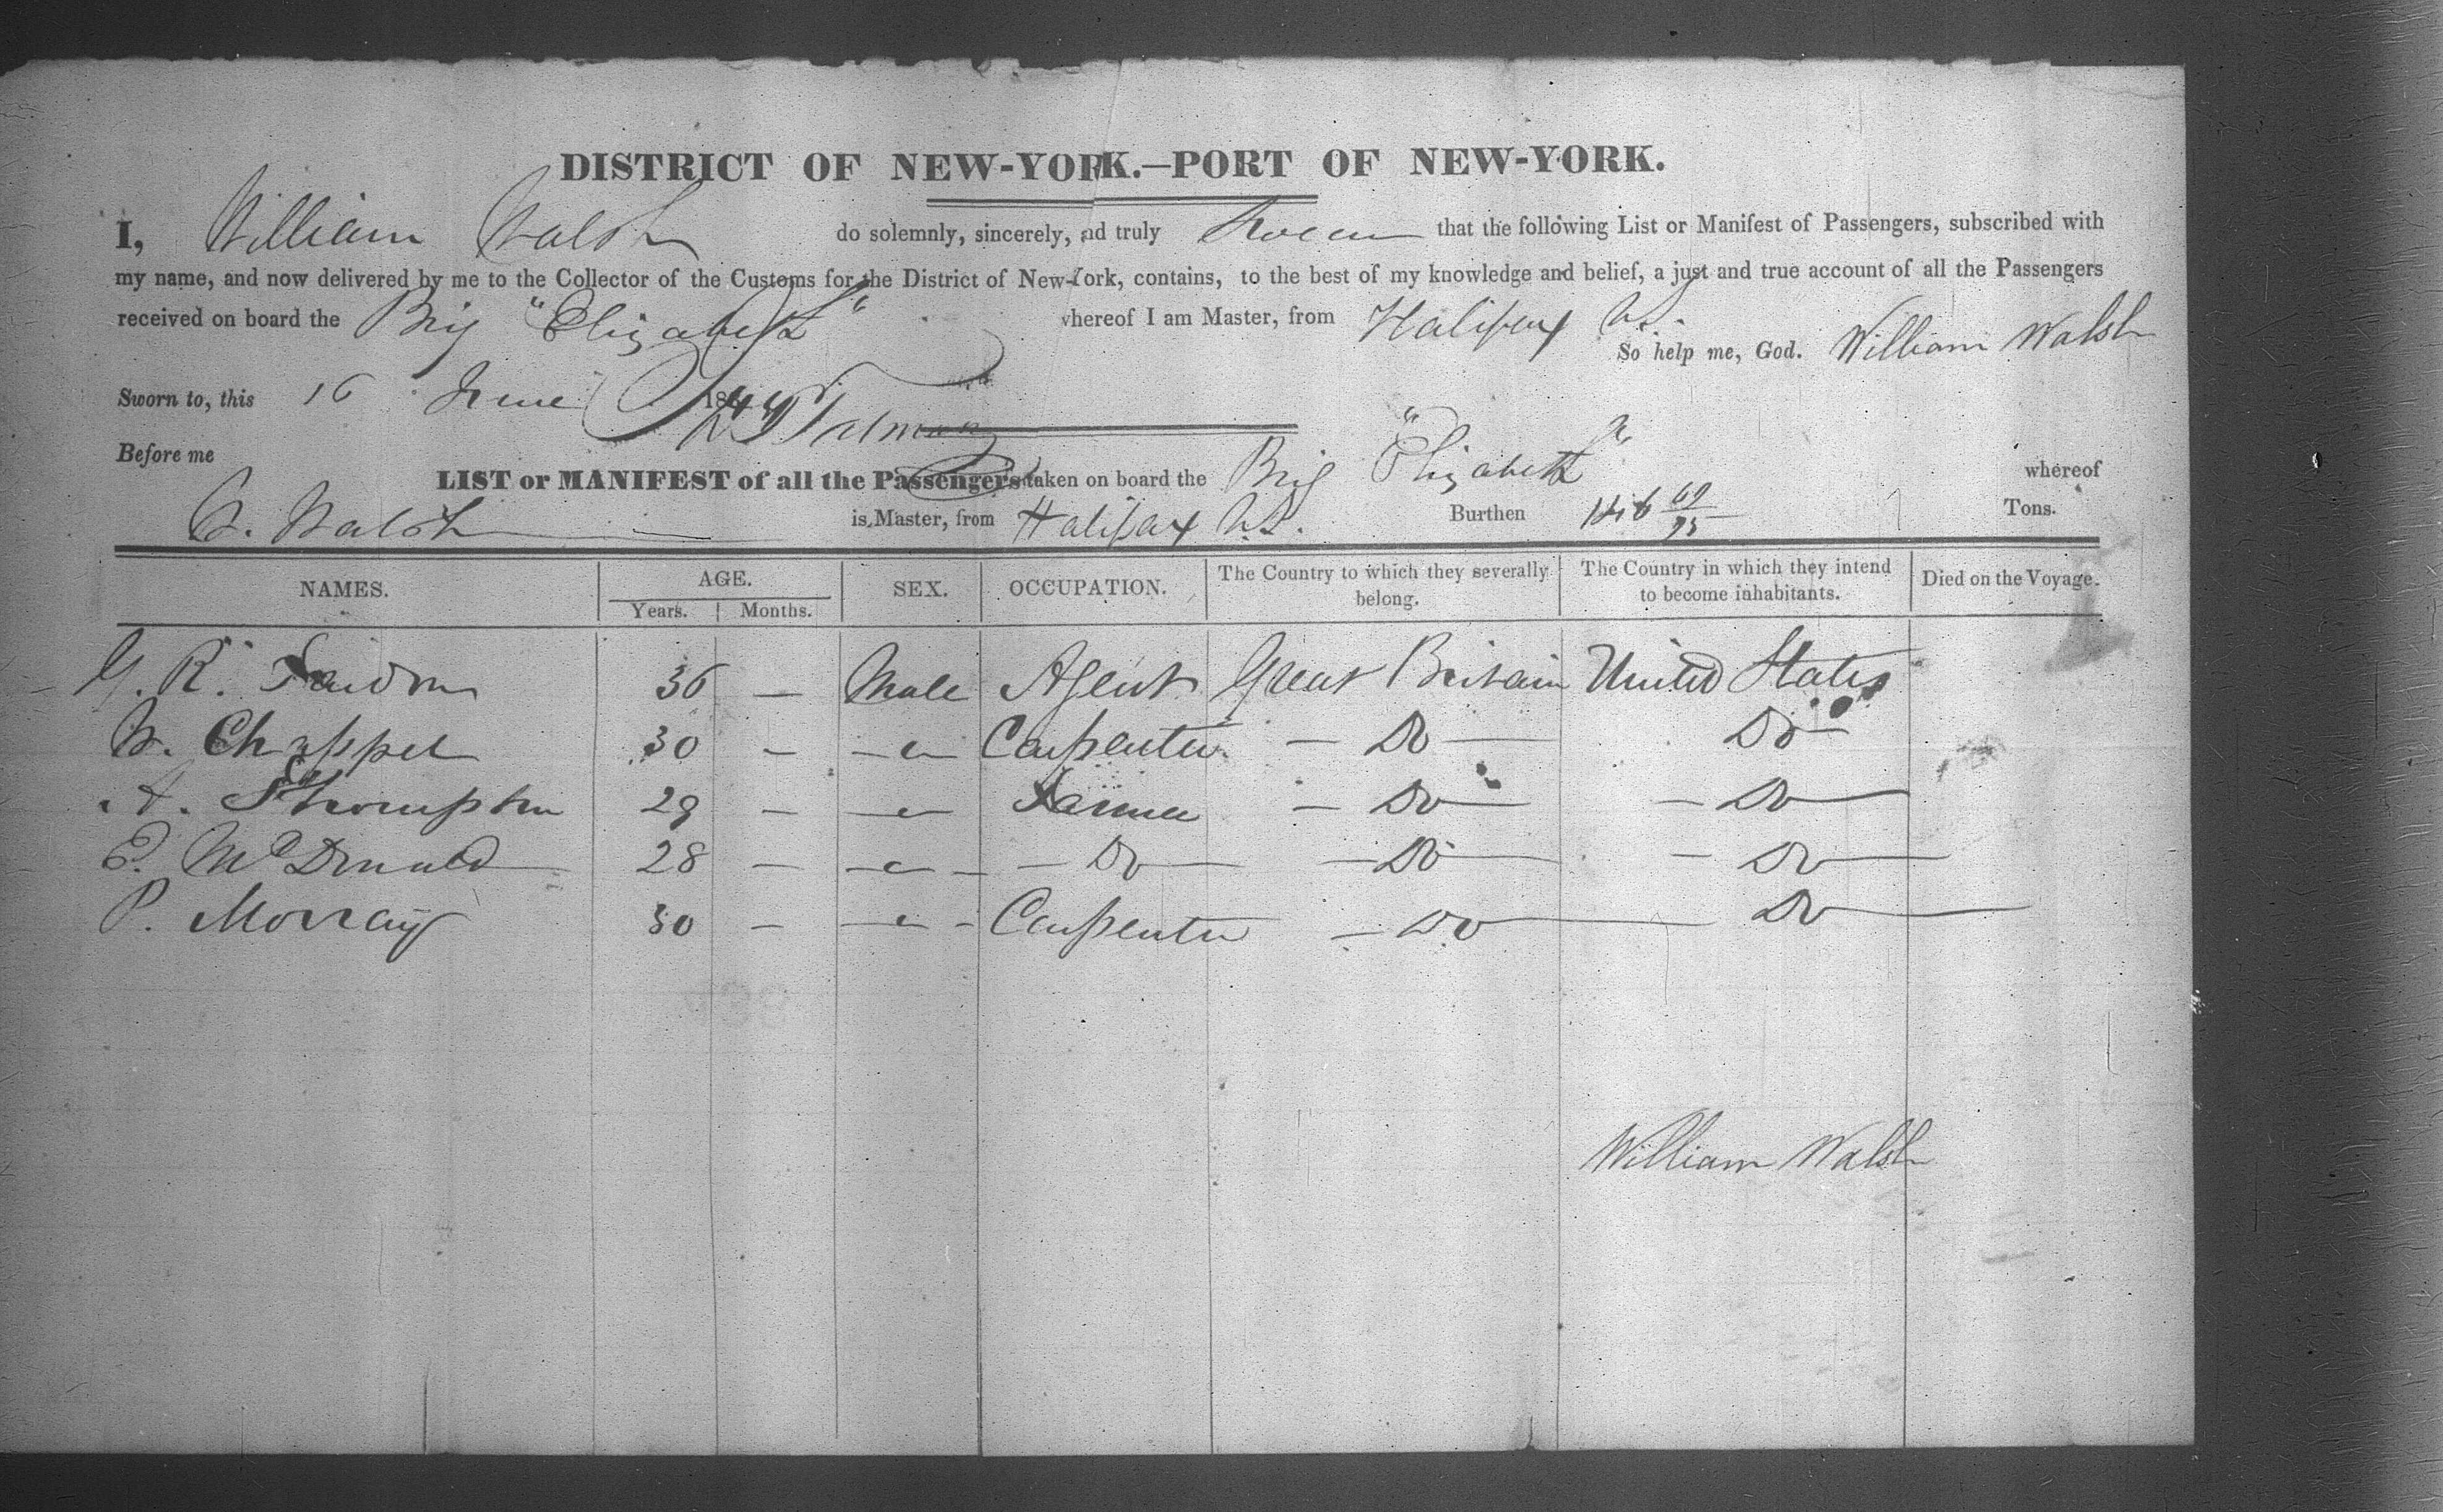 DISTRICT OF NEW-YORK.—PORT OF NEW-YORK.
I, William Walsh do solemnly, sincerely, and truly Swear that the following List or Manifest of Passengers, subscribed with
my name, and now delivered by me to the Collector of the Customs for the District of New-York, contains, to the best of my knowledge and belief, a just and true account of all the Passengers
received on board the Brig "Elizabeth" whereof I am Master, from Halifax N.S.
So help me, God. William Walsh
Sworn to, this 16 June 1844
Before me
LIST or MANIFEST of all the Passengers taken on board the Brig "Elizabeth" whereof
W. Walsh is Master, from Halifax N.S. Burthen 146 69/95 Tons.
NAMES. AGE. SEX. OCCUPATION. The Country to which they severally belong. The Country in which they intend to become inhabitants. Died on the Voyage.
Years. Months.
G. R. 36 — Male Agent Great Britain United States
W. Chappel 30 — — " Carpenter — Do — Do —
A. Thompson 29 — — " — Farmer — Do — — Do —
E. McDonald 28 — — " — — Do — — Do — — Do —
P. Morray 30 — — " — Carpenter — Do — Do —
William Walsh